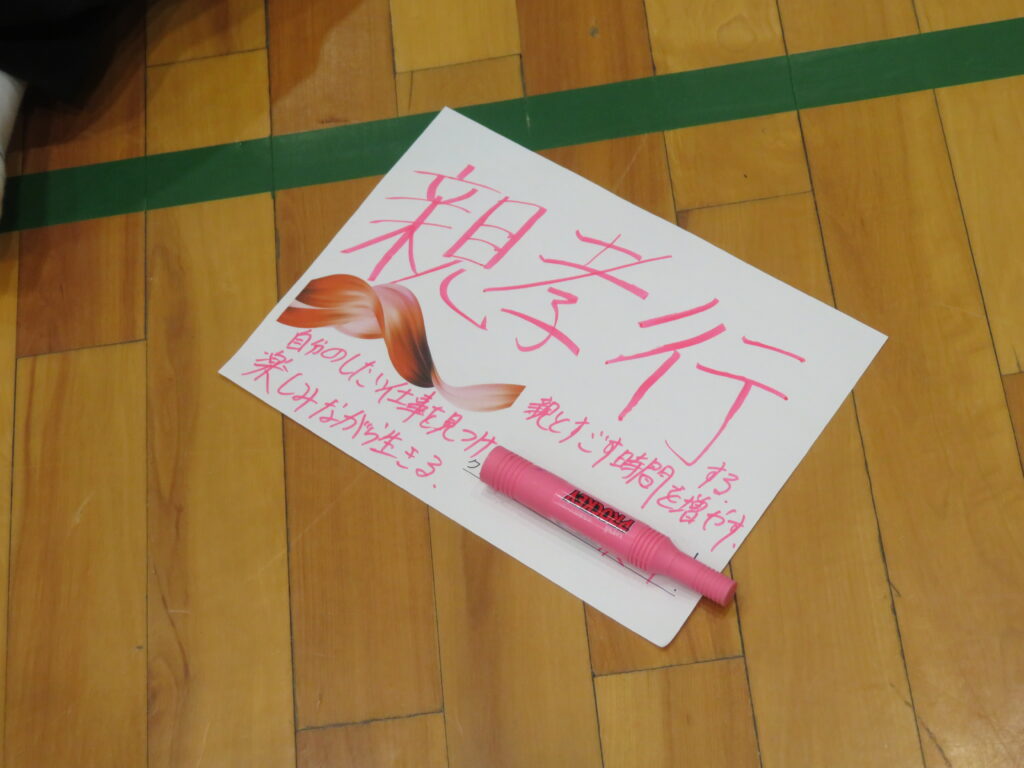 親孝行
する
親とすごす時間を増やす.
自分のしたい仕事を見つけ
楽しみながら生きる.
PROCKEY